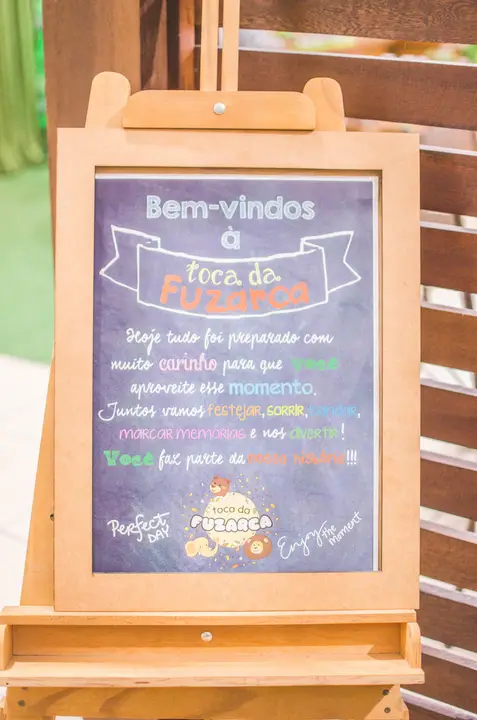 Bem-vindos
à
toca da
Fuzarca
Hoje tudo foi preparado com
muito carinho para que você
aproveite esse momento.
Juntos vamos festejar, sorrir, brincar,
marcar memórias e nos divertir!
Você faz parte da nossa história!!!
toca da
FUZARCA
Perfect
DAY
Enjoy the
moment